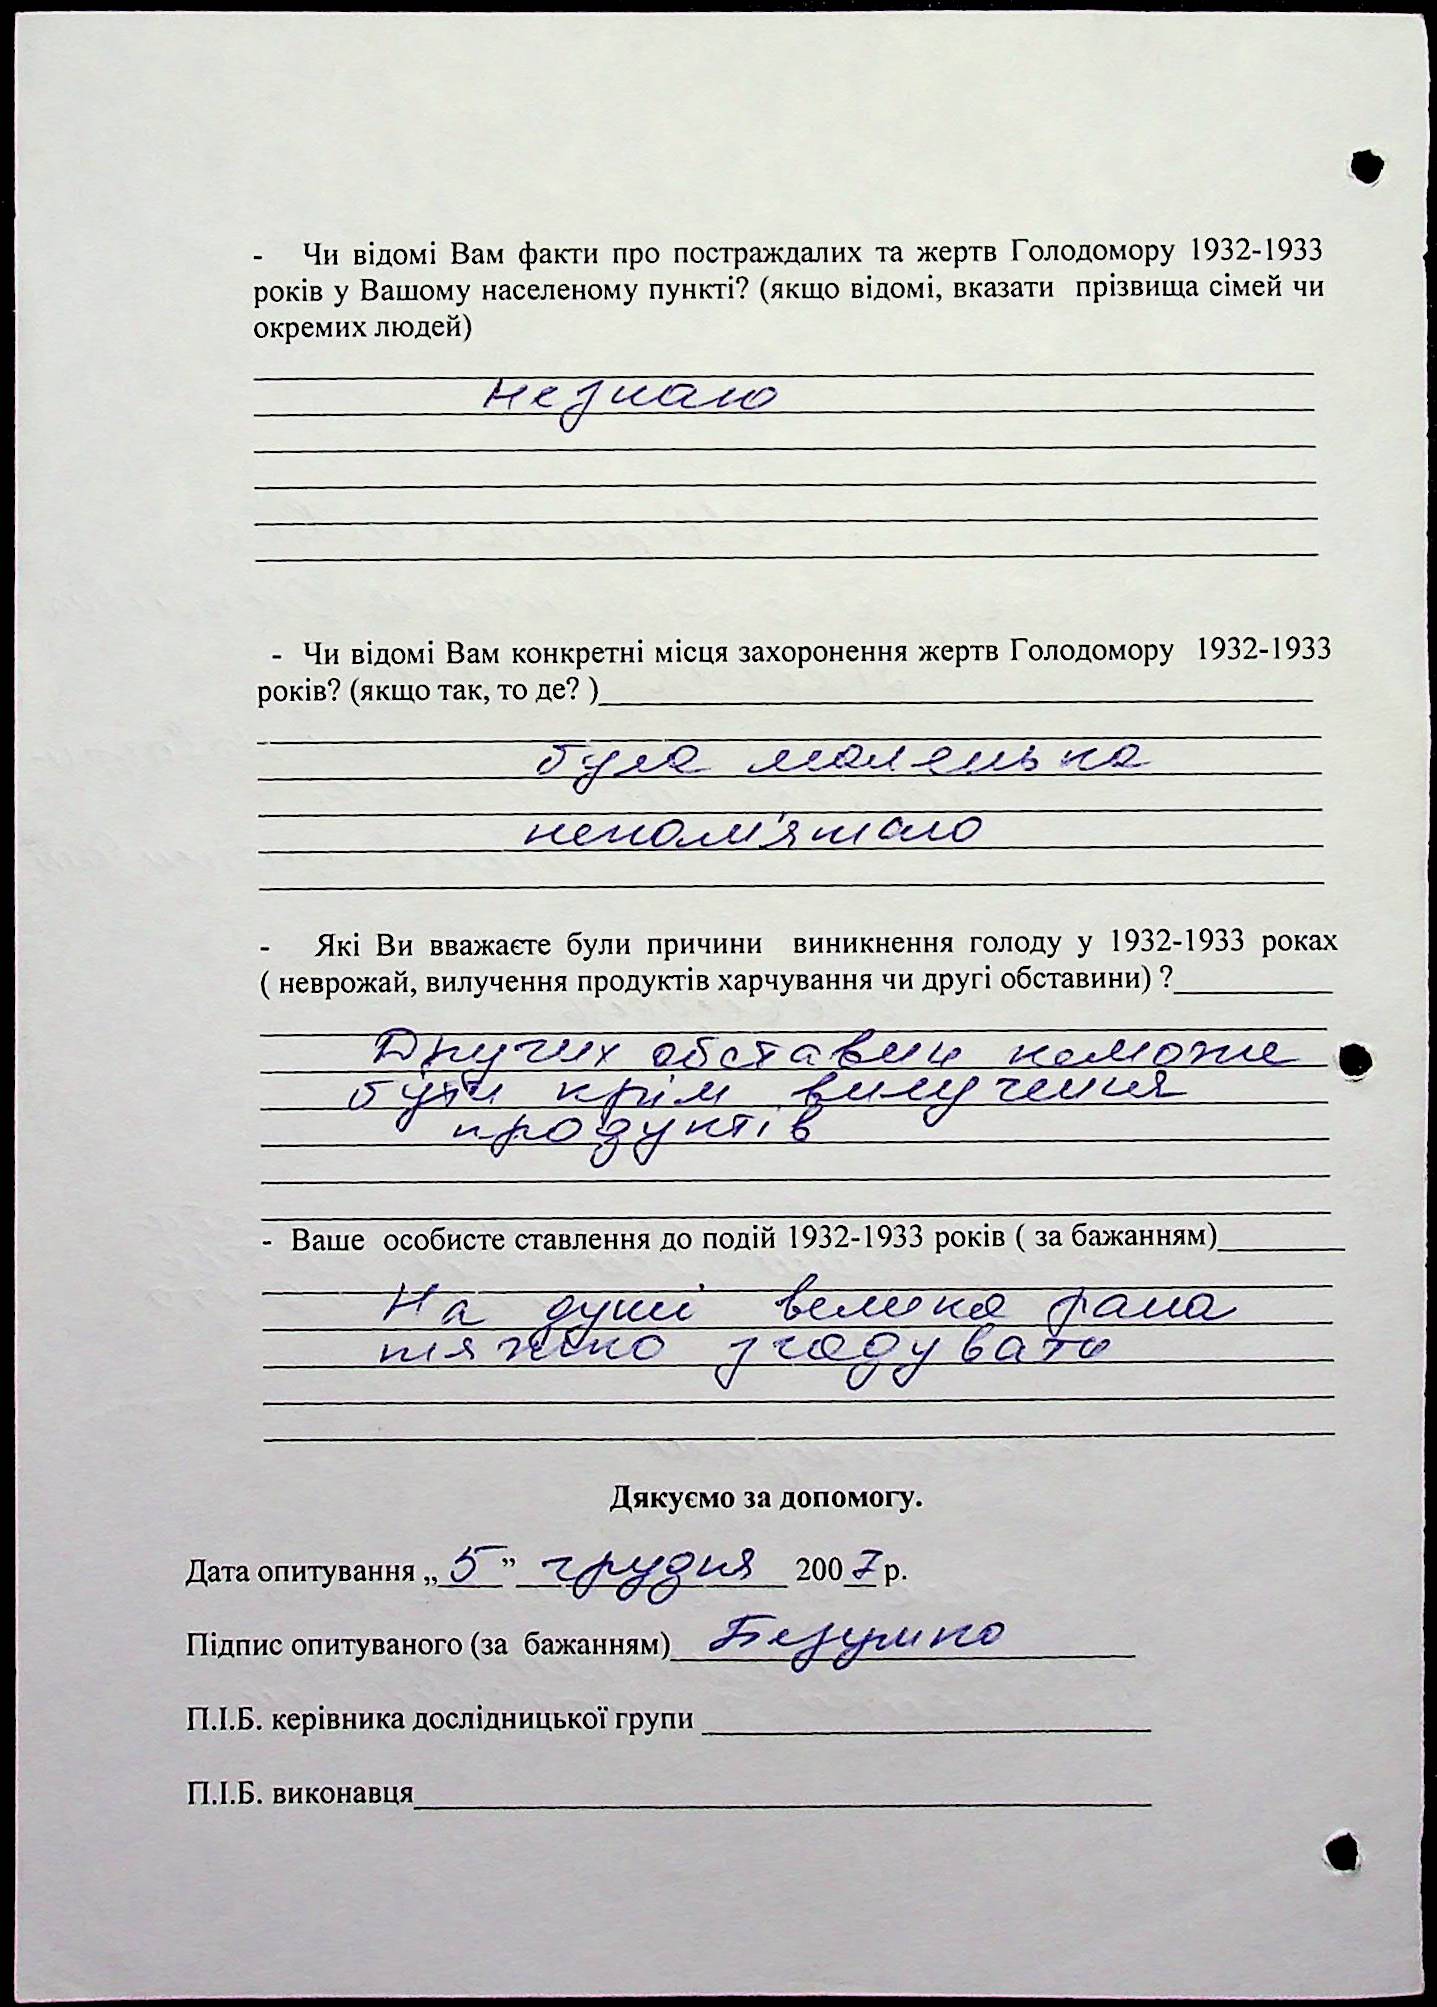 - Чи відомі Вам факти про постраждалих та жертв Голодомору 1932-1933
років у Вашому населеному пункті? (якщо відомі, вказати прізвища сімей чи
окремих людей)
незнаю
- Чи відомі Вам конкретні місця захоронення жертв Голодомору 1932-1933
років? (якщо так, то де? )
була маленька
непам'ятаю
- Які Ви вважаєте були причини виникнення голоду у 1932-1933 роках
( неврожай, вилучення продуктів харчування чи другі обставини) ?
Других обставин неможе
бути крім вилучення
продуктів
- Ваше особисте ставлення до подій 1932-1933 років ( за бажанням)
На душі велика рана
тяжко згадувати
Дякуємо за допомогу.
Дата опитування „ 5 ” грудня 2007 р.
Підпис опитуваного (за бажанням) Безумно
П.І.Б. керівника дослідницької групи
П.І.Б. виконавця